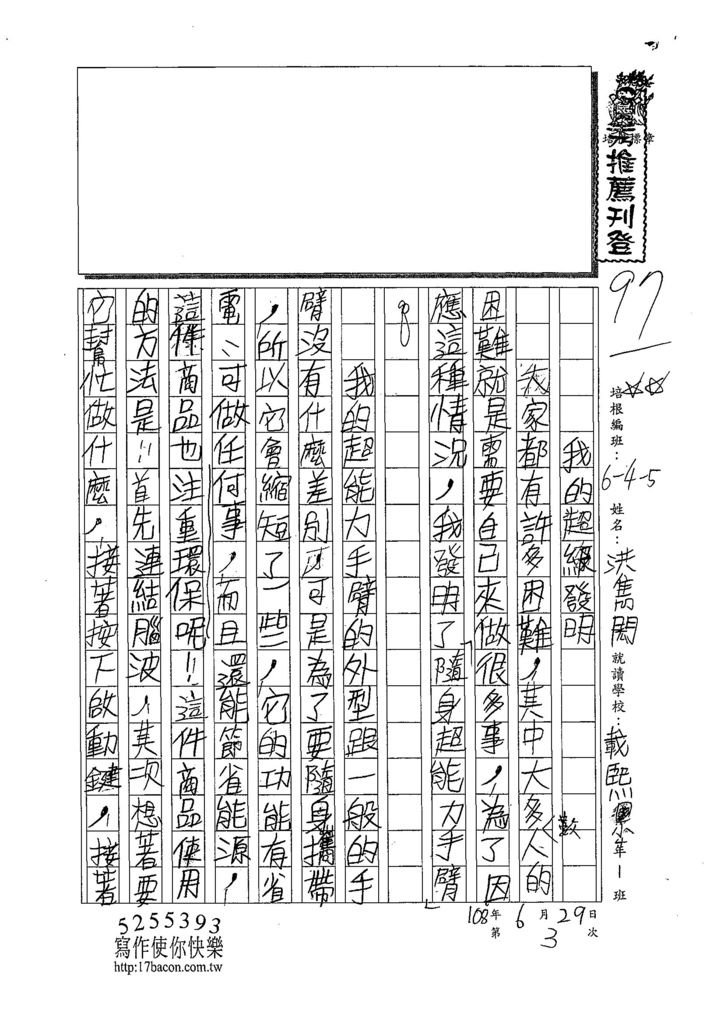 推薦刊登
97
培根編班：6-4-5 姓名：洪雋閎 就讀學校：載熙 年1班
108年6月29日
第3次
我的超級發明
我家都有許多困難，其中大多數人的
困難就是需要自己來做很多事，為了因
應這種情況，我發明了「隨身超能力手臂」
。
我的超能力手臂的外型跟一般的手
臂沒有什麼差別可可是為了要隨身攜帶
，所以它會縮短了一些，它的功能有省
電、可做任何事，而且還能節省能源，
這件商品也注重環保呢!!這件商品使用
的方法是!!首先連結腦波，其次想著要
它幫忙做什麼，接著按下啟動鍵，接著
5255393
寫作使你快樂
http:17bacon.com.tw